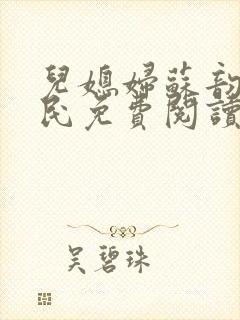 兒媳婦蘇韵
民免費閱讀
吴碧珠